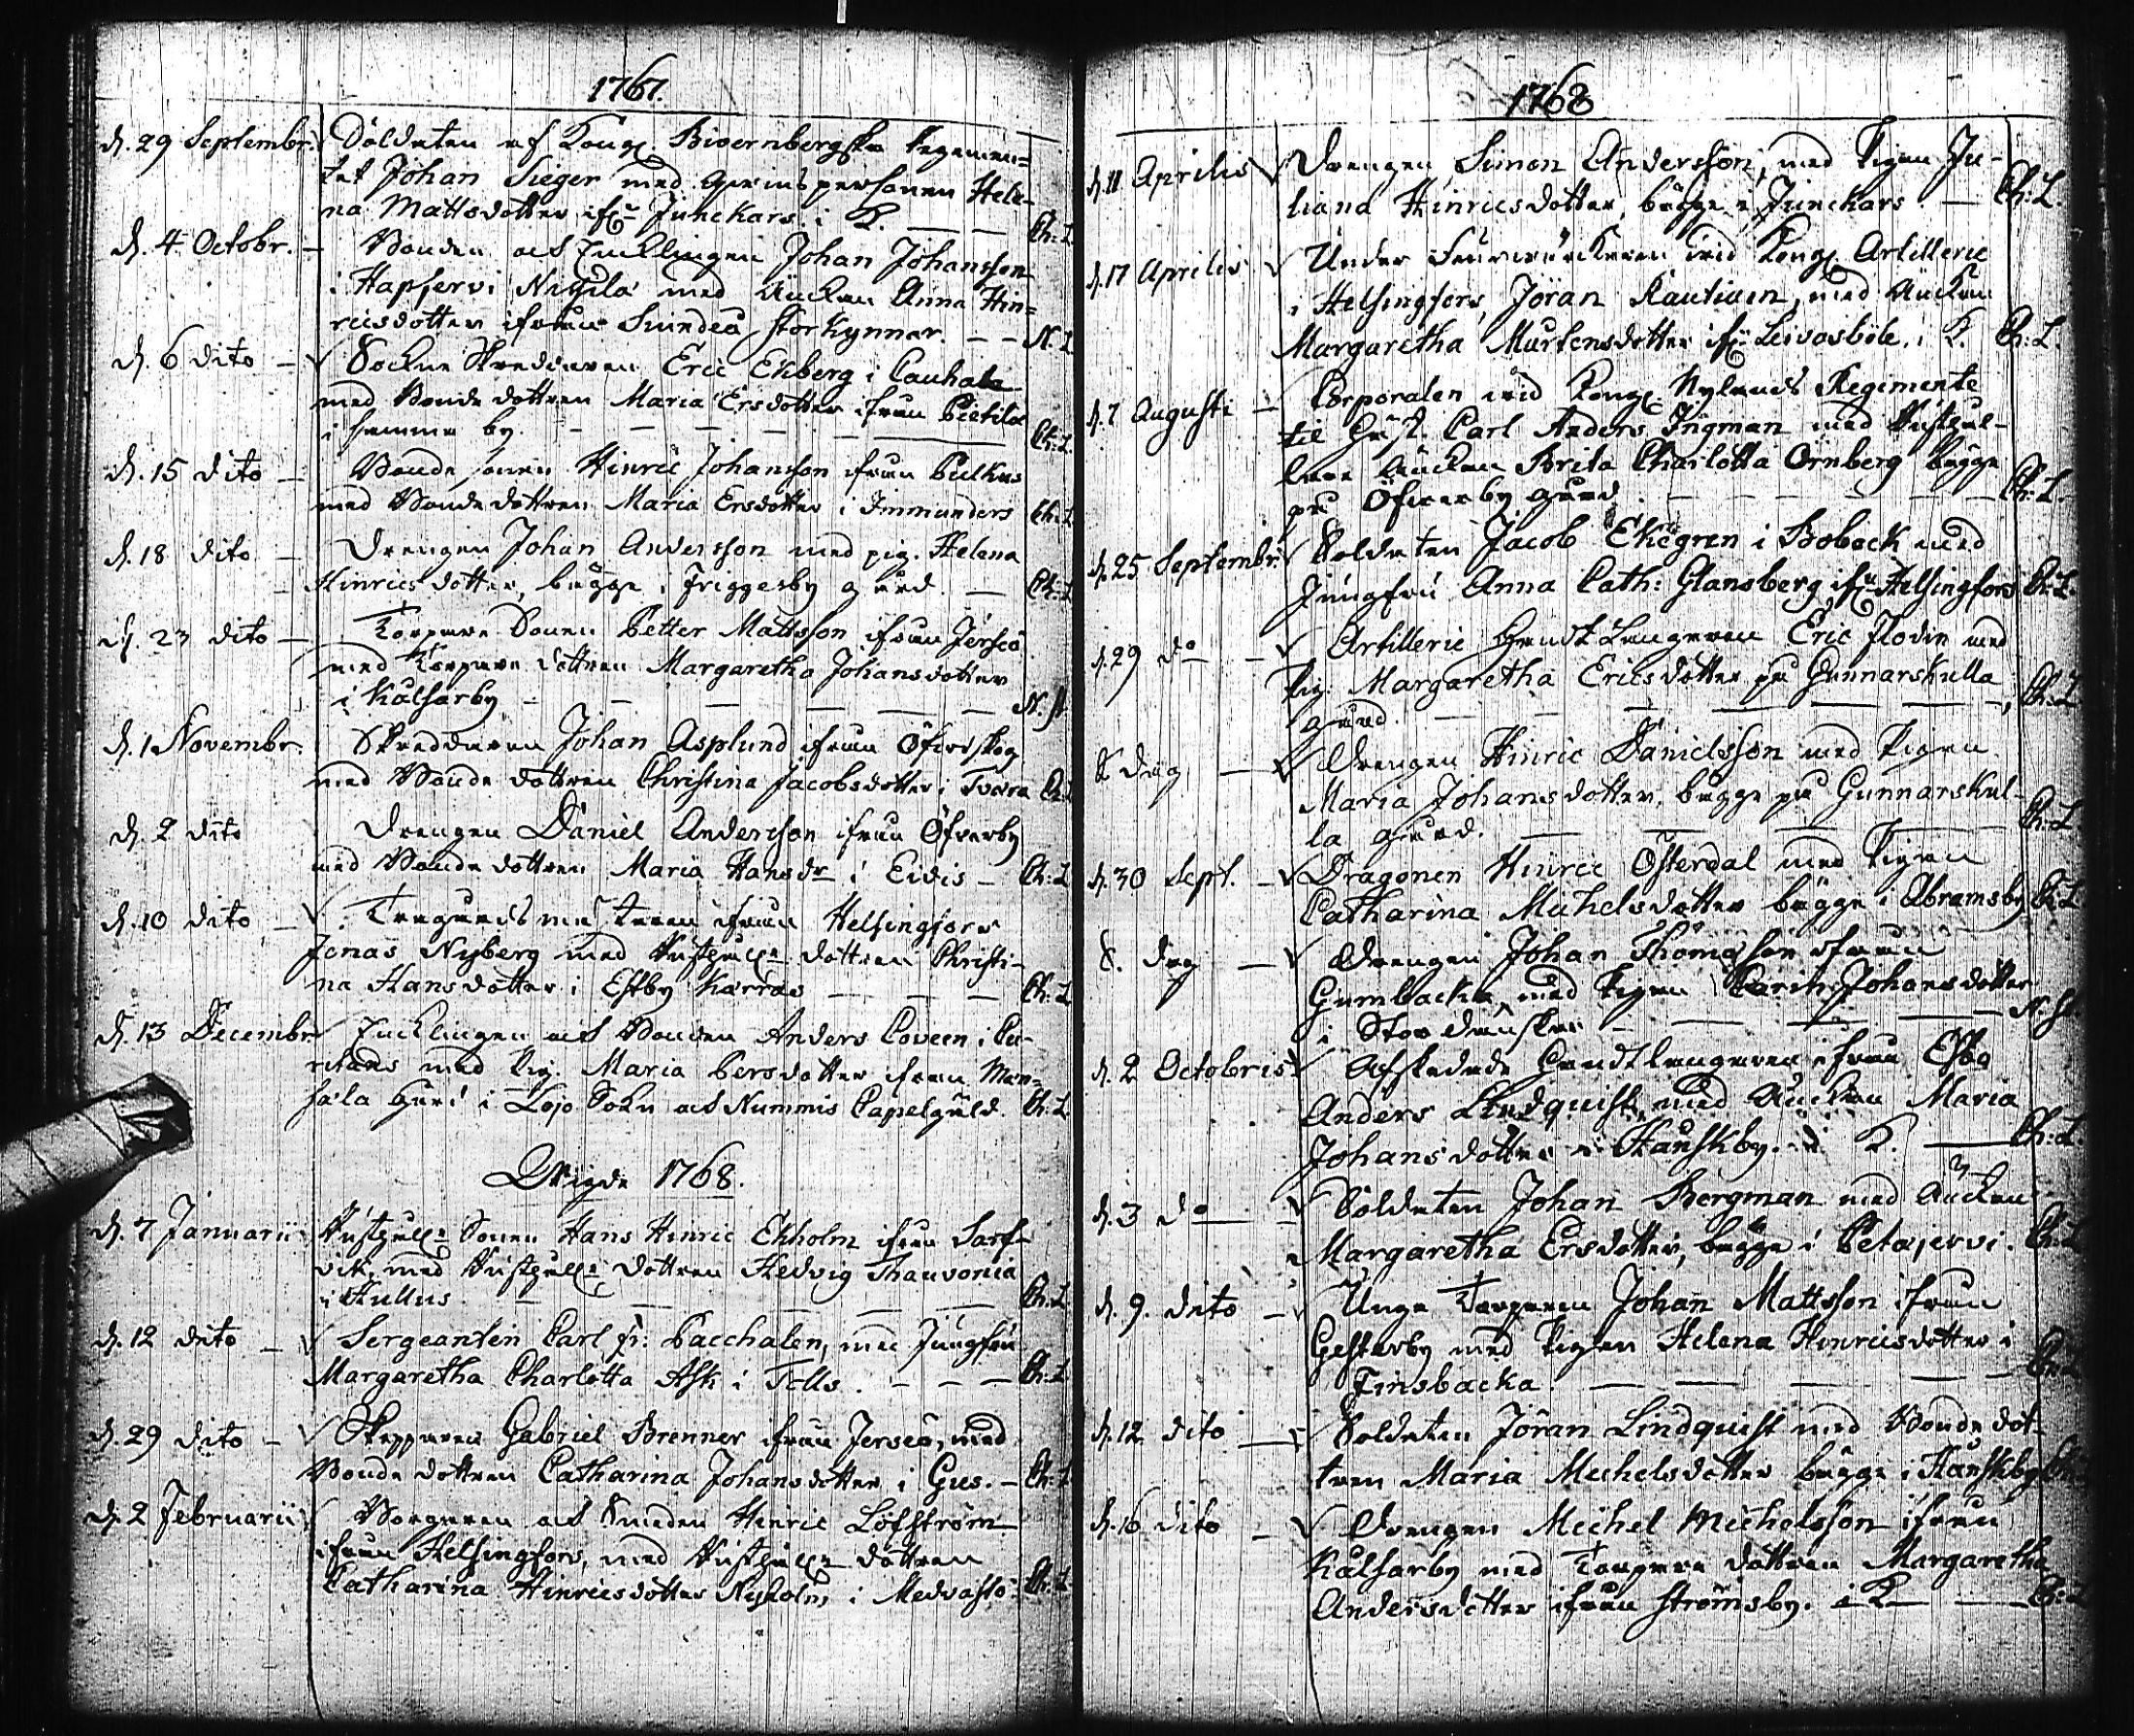 1767.
d. 29 Septembr. Soldaten af Kongl. Bioernbergska Regemen=
tet Johan Sieger med qvins personen Hele-
na Mattsdotter ifrn Junckars i K. — — Ch: L
d. 4 Octobr. — Bonden och Encklingen Johan Johansson
i Hapjervi Nigila med Änckan Anna Hin=
ricsdotter ifrån Svindea storkynnar. — — N. L
d. 6 dito — Sockne Skreddaren Eric Ekberg i Cauhala
med Bonde dottren Maria Ersdotter ifrån Pietila
i samma by. — — — — — Ch: L.
d. 15 dito — Bonde sonen Hinric Johansson ifrån Pulkus
med Bonde dottren Maria Ersdotter i Inmunders Ch: L
d. 18 dito — Drengen Johan Andersson med pig. Helena
Hinrics dotter, bägge i Friggesby gård. — Ch: L
d. 23 dito — Torpare Sonen Petter Mattsson ifrån Jerseö
med Torpare dottren Margaretha Johansdotter
i Kalsarby — — — — — N. st
d. 1 Novembr. Skreddaren Johan Asplund ifrån Öfverskog
med Bonde dottren Christina Jacobsdotter i Tvära Ch: L
d. 2 dito Drengen Daniel Andersson ifrån Öfverby
med Bonde dottren Maria Hansdr i Eivis — Ch: L
d. 10 dito — Tregårds mästaren ifrån Helsingfors
Jonas Nyberg med Rusthålls dottren Christi-
na Hansdotter i Estby Karras — — — Ch: L
d. 13 Decembr. Encklingen och Bonden Anders Loveen i Cu-
rikans med Pig. Maria Persdotter ifrån Mon=
sala Hård i Lojo Sokn och Nummis Capelgäld. Ch: L
Wigde 1768.
d. 7 Januarii Rusthålls Sonen Hans Hinric Ekholm ifrån Sarf-
vik, med Rusthålls dottren Hedvig Thauvonia
i Kullus — — — — Ch: L
d. 12 dito — Sergeanten Carl Fr: Pacchalen, med Jungfru
Margaretha Charlotta Ask i Tolls. — — — Ch: L
d. 29 dito — Skepparen Gabriel Brenner ifrån Jerseö, med
Bonde dottren Catharina Johansdotter i Gies. — Ch: L
d. 2 Februarii Borgaren och Smeden Hinric Löfström
ifrån Helsingfors, med Rusthålls dottren
Catharina Hinricsdotter Nyholm i Medvastö. Ch: L
1768
d. 11 Aprilis Drengen Simon Andersson, med Pigan Ju-
liana Hinricsdotter, bägge i Junckars. — Ch: L.
d. 17 Aprilis Under Feurwärckeren wid Kongl. Artillerie
i Helsingfors, Jöran Kautiain, med Änckan
Margaretha Mårtensdotter ifrn Leivosböle. i K. Ch: L.
d. 7 Augusti — Corporalen wid Kongl. Nylands Regimente
till Häst. Carl Anders Ingman med Rusthål-
lare Änckan Brita Charlotta Örnberg bägge
på Öfverby gård. — — — — — Ch: L.
d. 25 Septembr. Soldaten Jacob Ekegren i Boback med
Jungfru Anna Cath: Glansberg ifn Helsingfors Ch: L.
d. 29 do — Artillerie Handt Langeren Eric Flodin med
Pig. Margaretha Ericsdotter på Gunnarskulla
gård. — — — — — Ch: L
S. dag — Drengen Hinric Danielsson med Pigan
Maria Johansdotter, bägge på Gunnarskul-
la gård. — — — — Ch: L.
d. 30 Sept. — Dragonen Hinric Österdal med Pigan
Catharina Michelsdotter bägge i Abramsby Ch: L
S. dag — Drengen Johan Thomasson ifrån
Gumbacka, med Pigan Carin Johansdotter
i Stor — — — N. st.
d. 2 Octobris Afskedade Handtlangaren ifrån Esbo
Anders Lindquist, med Änckan Maria
Johansdotter i Hauskby. i K. — Ch: L.
d. 3 do — Soldaten Johan Bergman med Änckan
Margaretha Ersdotter, bägge i Petajervi. Ch: L
d. 9. dito — Unge Torparen Johan Mattsson ifrån
Gesterby med Pigan Helena Hinricsdotter i
Finsbacka. — — — — Ch: L
d. 12 dito — Soldaten Jöran Lindquist med Bonde dot-
tren Maria Michelsdotter bägge i Hauskby Ch:
d. 16 dito — Drengen Michel Michelsson ifrån
Kalsarby med Torpare dottren Margaretha
Andersdotter ifrån Strömsby. i K — — Ch: L